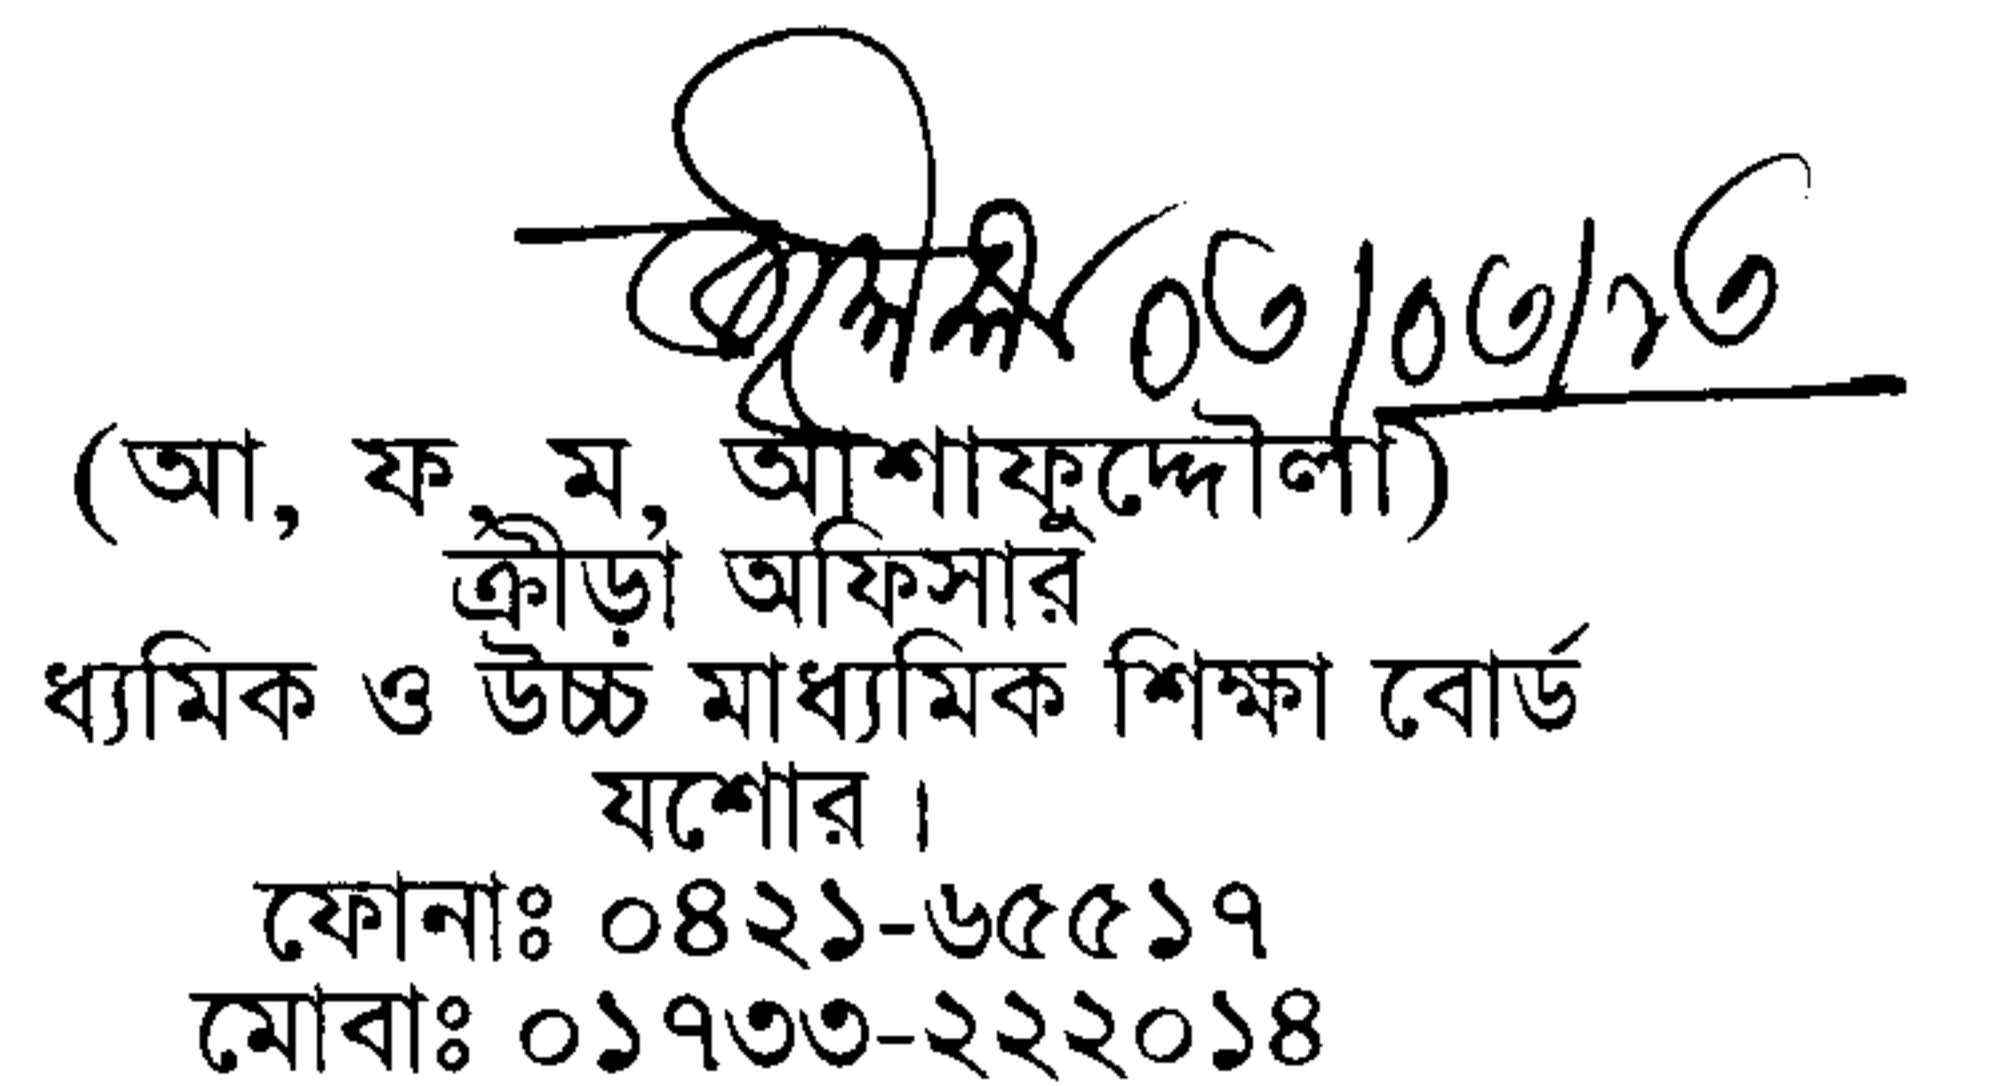 ০৩/০৩/১৩
(আ, ফ, ম, আশাফুদ্দৌলা)
ক্রীড়া অফিসার
ধ্যমিক ও উচ্চ মাধ্যমিক শিক্ষা বোর্ড
যশোর।
ফোনাঃ ০৪২১-৬৫৫১৭
মোবাঃ ০১৭৩৩-২২২০১৪